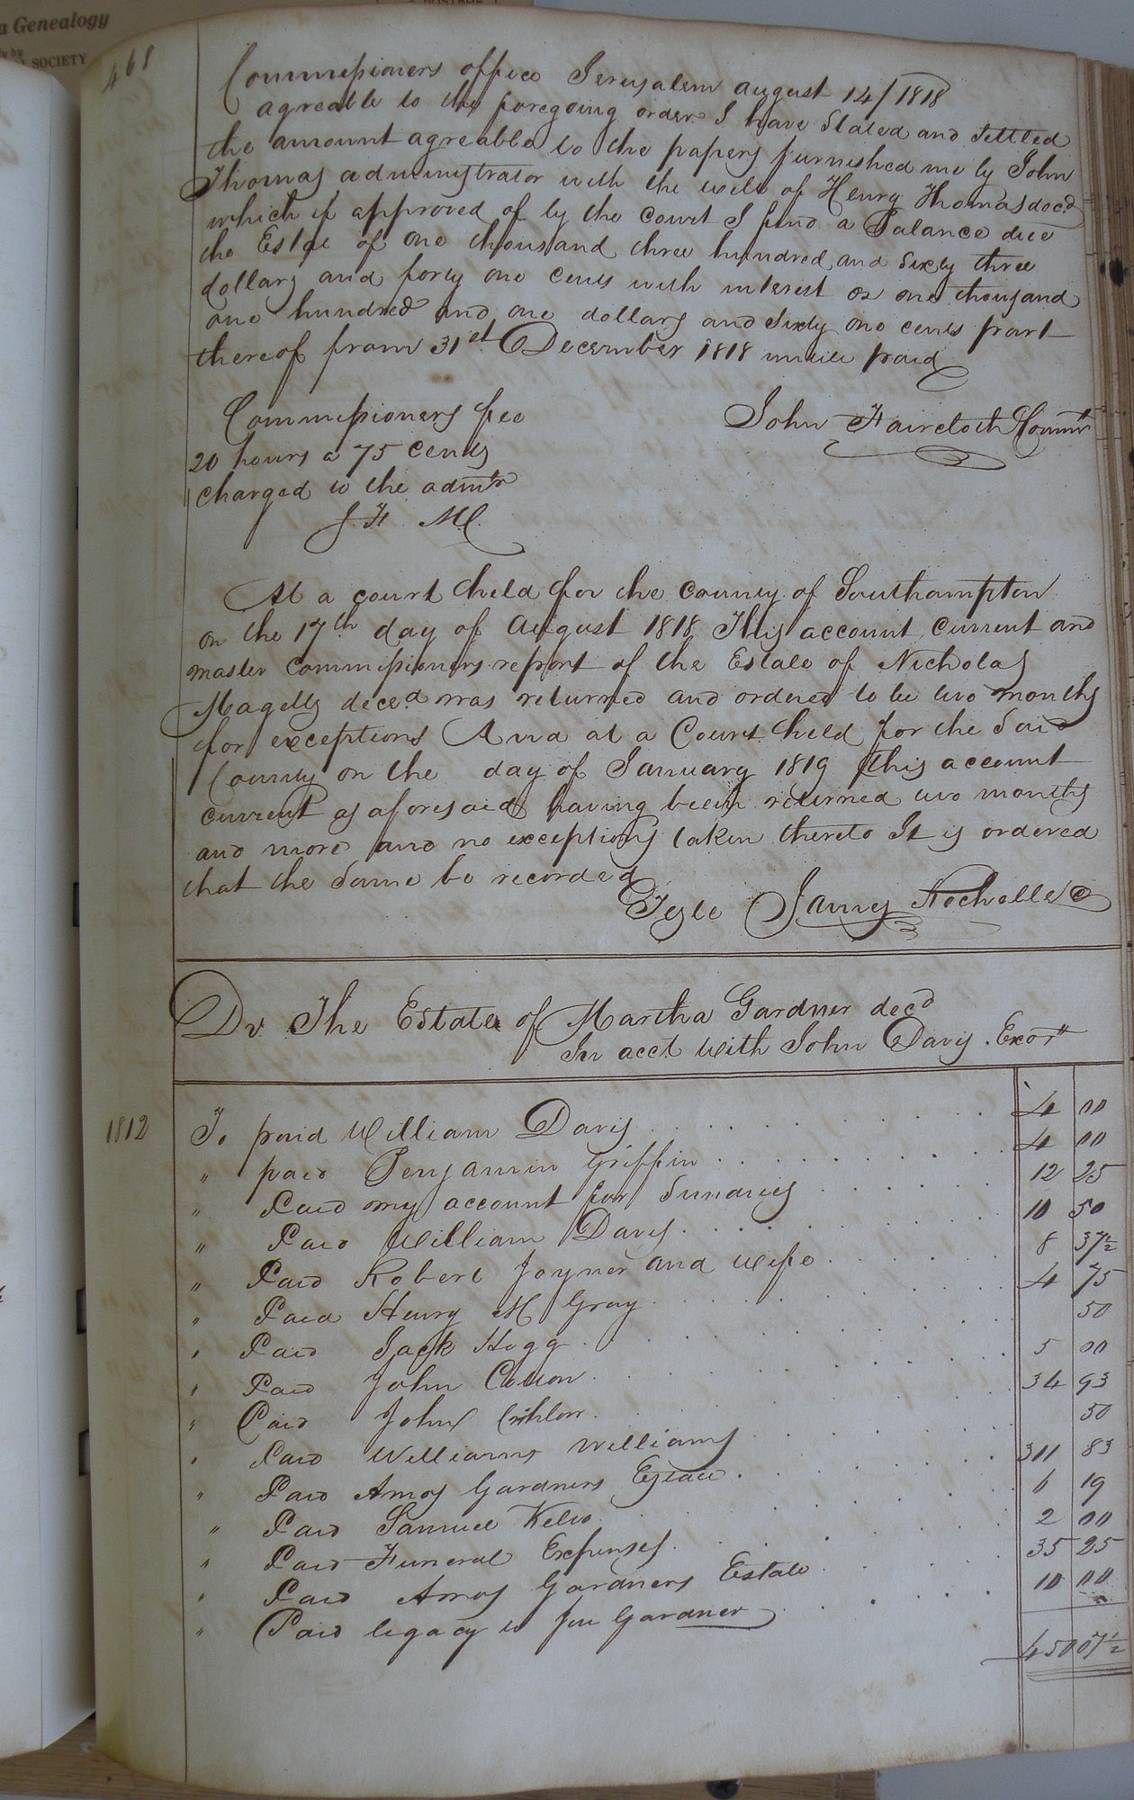 a Genealogy
SOCIETY
468
Commissioners office Jerusalem august 14/1818
agreable to the foregoing order I have Stated and Settled
the amount agreable to the papers furnished me by John
Thomas administrator with the will of Henry Thomas decd
which if approved of by the court I find a Balance due
the Estate of one thousand three hundred and Sixty three
dollars and forty one cents with interest on one thousand
one hundred and one dollars and Sixty one cents part
thereof from 31st December 1818 untill paid
John Faircloth Commr
Commissioners fee
20 hours a 75 cents
charged to the admtr
J. F. M.C.
At a court held for the county of Southampton
on the 17th day of August 1818 This account current and
master commissioners report of the Estate of Nicholas
Magetts deced was returned and ordered to lie two months
for exceptions And at a Court held for the Said
County on the day of January 1819 this account
current as aforesaid having been returned two months
and more and no exceptions taken thereto It is ordered
that the Same be recorded
Teste James Rochelle C
Dr The Estate of Martha Gardner decd
In acct with John Davis Exor
1812 To paid William Davis 4 00
" paid Benjamin Griffin 4 00
" Paid my account for Sundries 12 25
" Paid William Davis 10 50
" Paid Robert Joyner and wife 8 37½
" Paid Henry M Gray 4 75
" Paid Jack Hogg 50
" Paid John Cotton 5 00
" Paid John 34 93
" Paid Williams Williams 50
" Paid Amos Gardners Estate 311 83
" Paid Samuel Kello 6 19
" Paid Funeral Expenses 2 00
" Paid Amos Gardners Estate 35 25
" Paid legacy to Gardner 10 00
450 07½